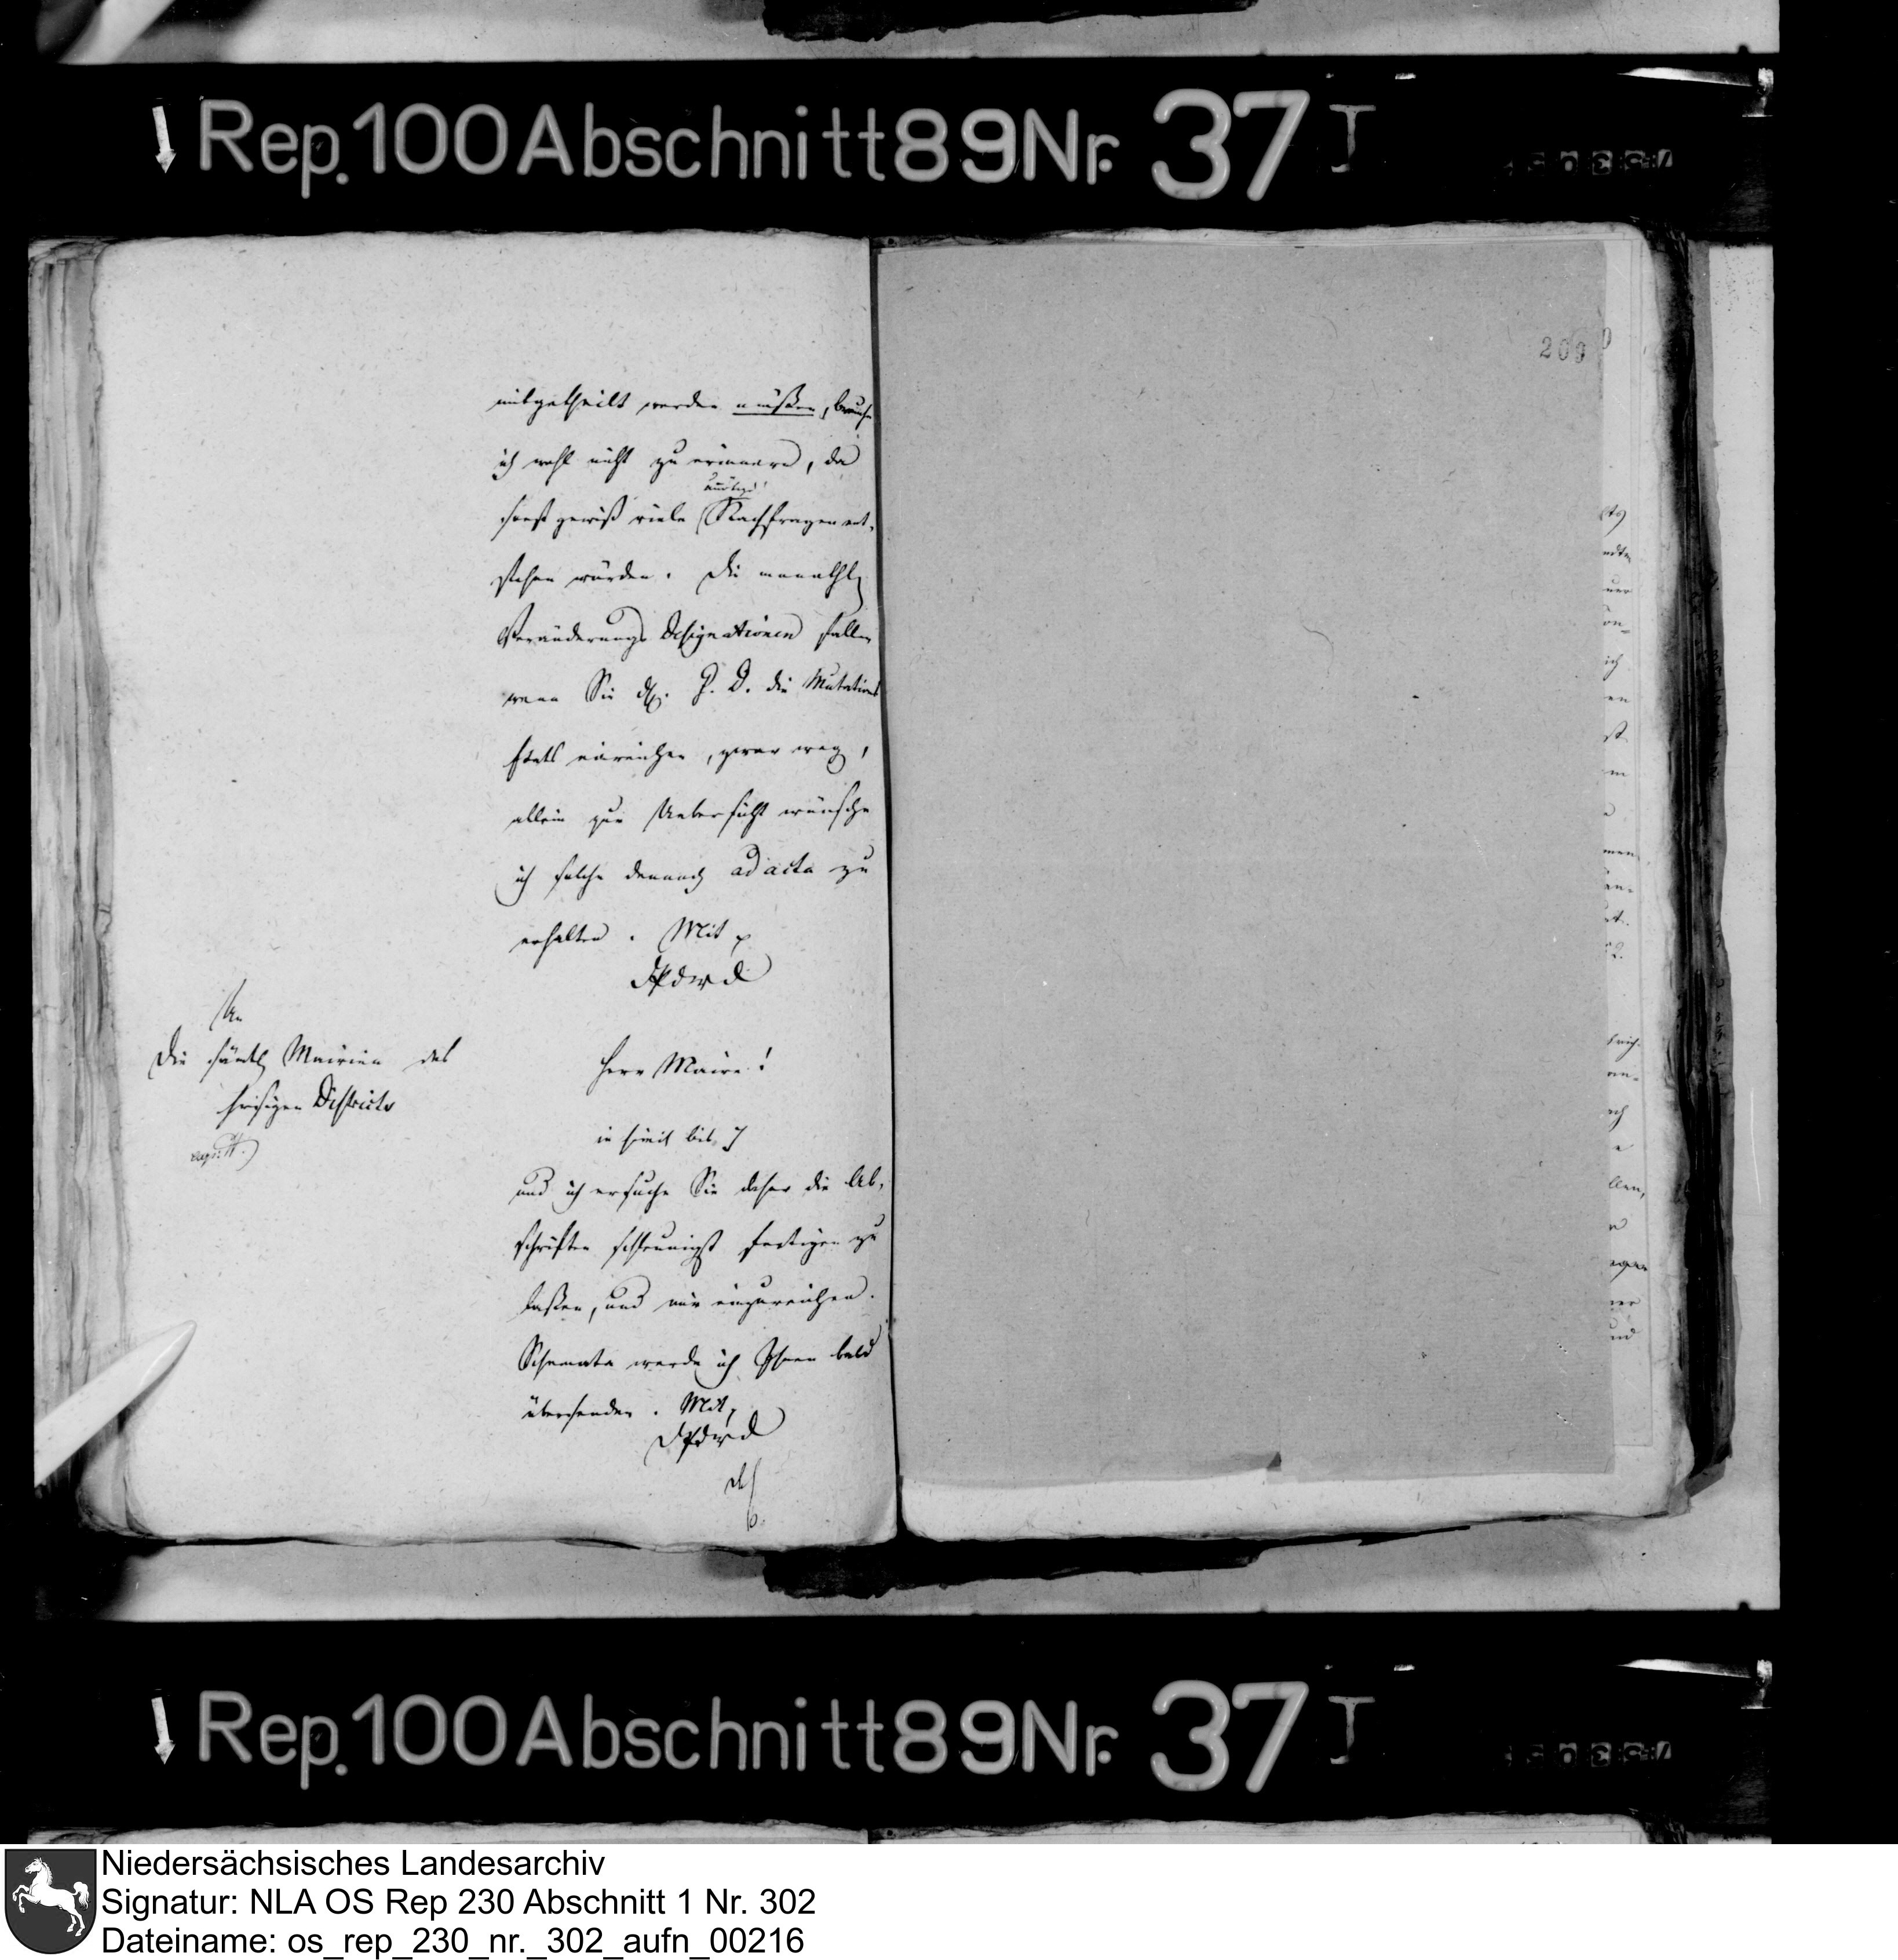 Rep. 100 Abschnitt 89 Nr. 37 I
209
mitgetheilt werden müßen, brauche
ich wohl nicht zu erinnern, da
sonst gewiß viele Nachfragen ent-
stehen würden. Die monathl
Veränderungs Designationen fallen
wenn Sie P. D. die Mutations
Etats einreichen, zwar weg,
allein zur Uebersicht wünsche
ich solche dennoch ad acta zu
erhalten. Mit
An
die sämtl Mairien des
hiesigen Districts
Herr Maire!
in simil bis
und ich ersuche Sie daher die Ab-
schriften schleunigst fertigen zu
laßen, und mir einzureichen.
Schemata werde ich Ihnen bald
übersenden. Mit
Rep. 100 Abschnitt 89 Nr. 37 I
Niedersächsisches Landesarchiv
Signatur: NLA OS Rep 230 Abschnitt 1 Nr. 302
Dateiname: os_rep_230_nr._302_aufn_00216